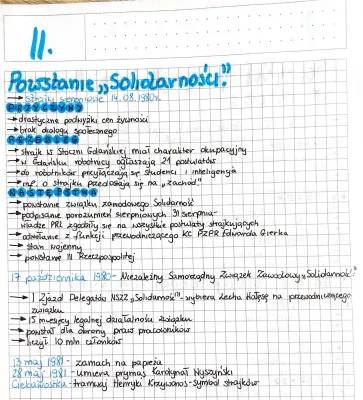 II.
Powstanie „Solidarności."
→ Strajki sierpniowe 14.08.1980r.
PRZYCZYNY
→ drastyczne podwyżki cen żywności
→ brak dialogu społecznego
PRZEBIEG
→ strajk w Stoczni Gdańskiej miał charakter okupacyjny
→ w Gdańsku robotnicy ogłaszają 21 postulatów
→ do robotników przyłączają się studenci i inteligencja
→ inf. o strajku przedostają się na „zachód"
NASTĘPSTWA
→ powstanie związku zawodowego Solidarność
→ podpisanie porozumień sierpniowych 31 sierpnia-
władze PRL zgodziły się na wszystkie postulaty strajkujących
→ odwołanie z funkcji przewodniczącego KC PZPR Edwarda Gierka
→ stan wojenny
→ powstanie III Rzeczpospolitej
17 października 1980- Niezależny Samorządny Związek Zawodowy „Solidarność"
→ I Zjazd Delegatów NSZZ „Solidarność" - wybiera Lecha Wałęsę na przewodniczącego
związku
→ 15 miesięcy legalnej działalności związku
→ powstał dla obrony praw pracowników
→ liczył 10 mln członków
13 maj 1981 - zamach na papieża
28 maj 1981 - umiera prymas Kardynał Wyszyński
Ciekawostka - tramwaj Henryki Krzywonos - symbol strajków